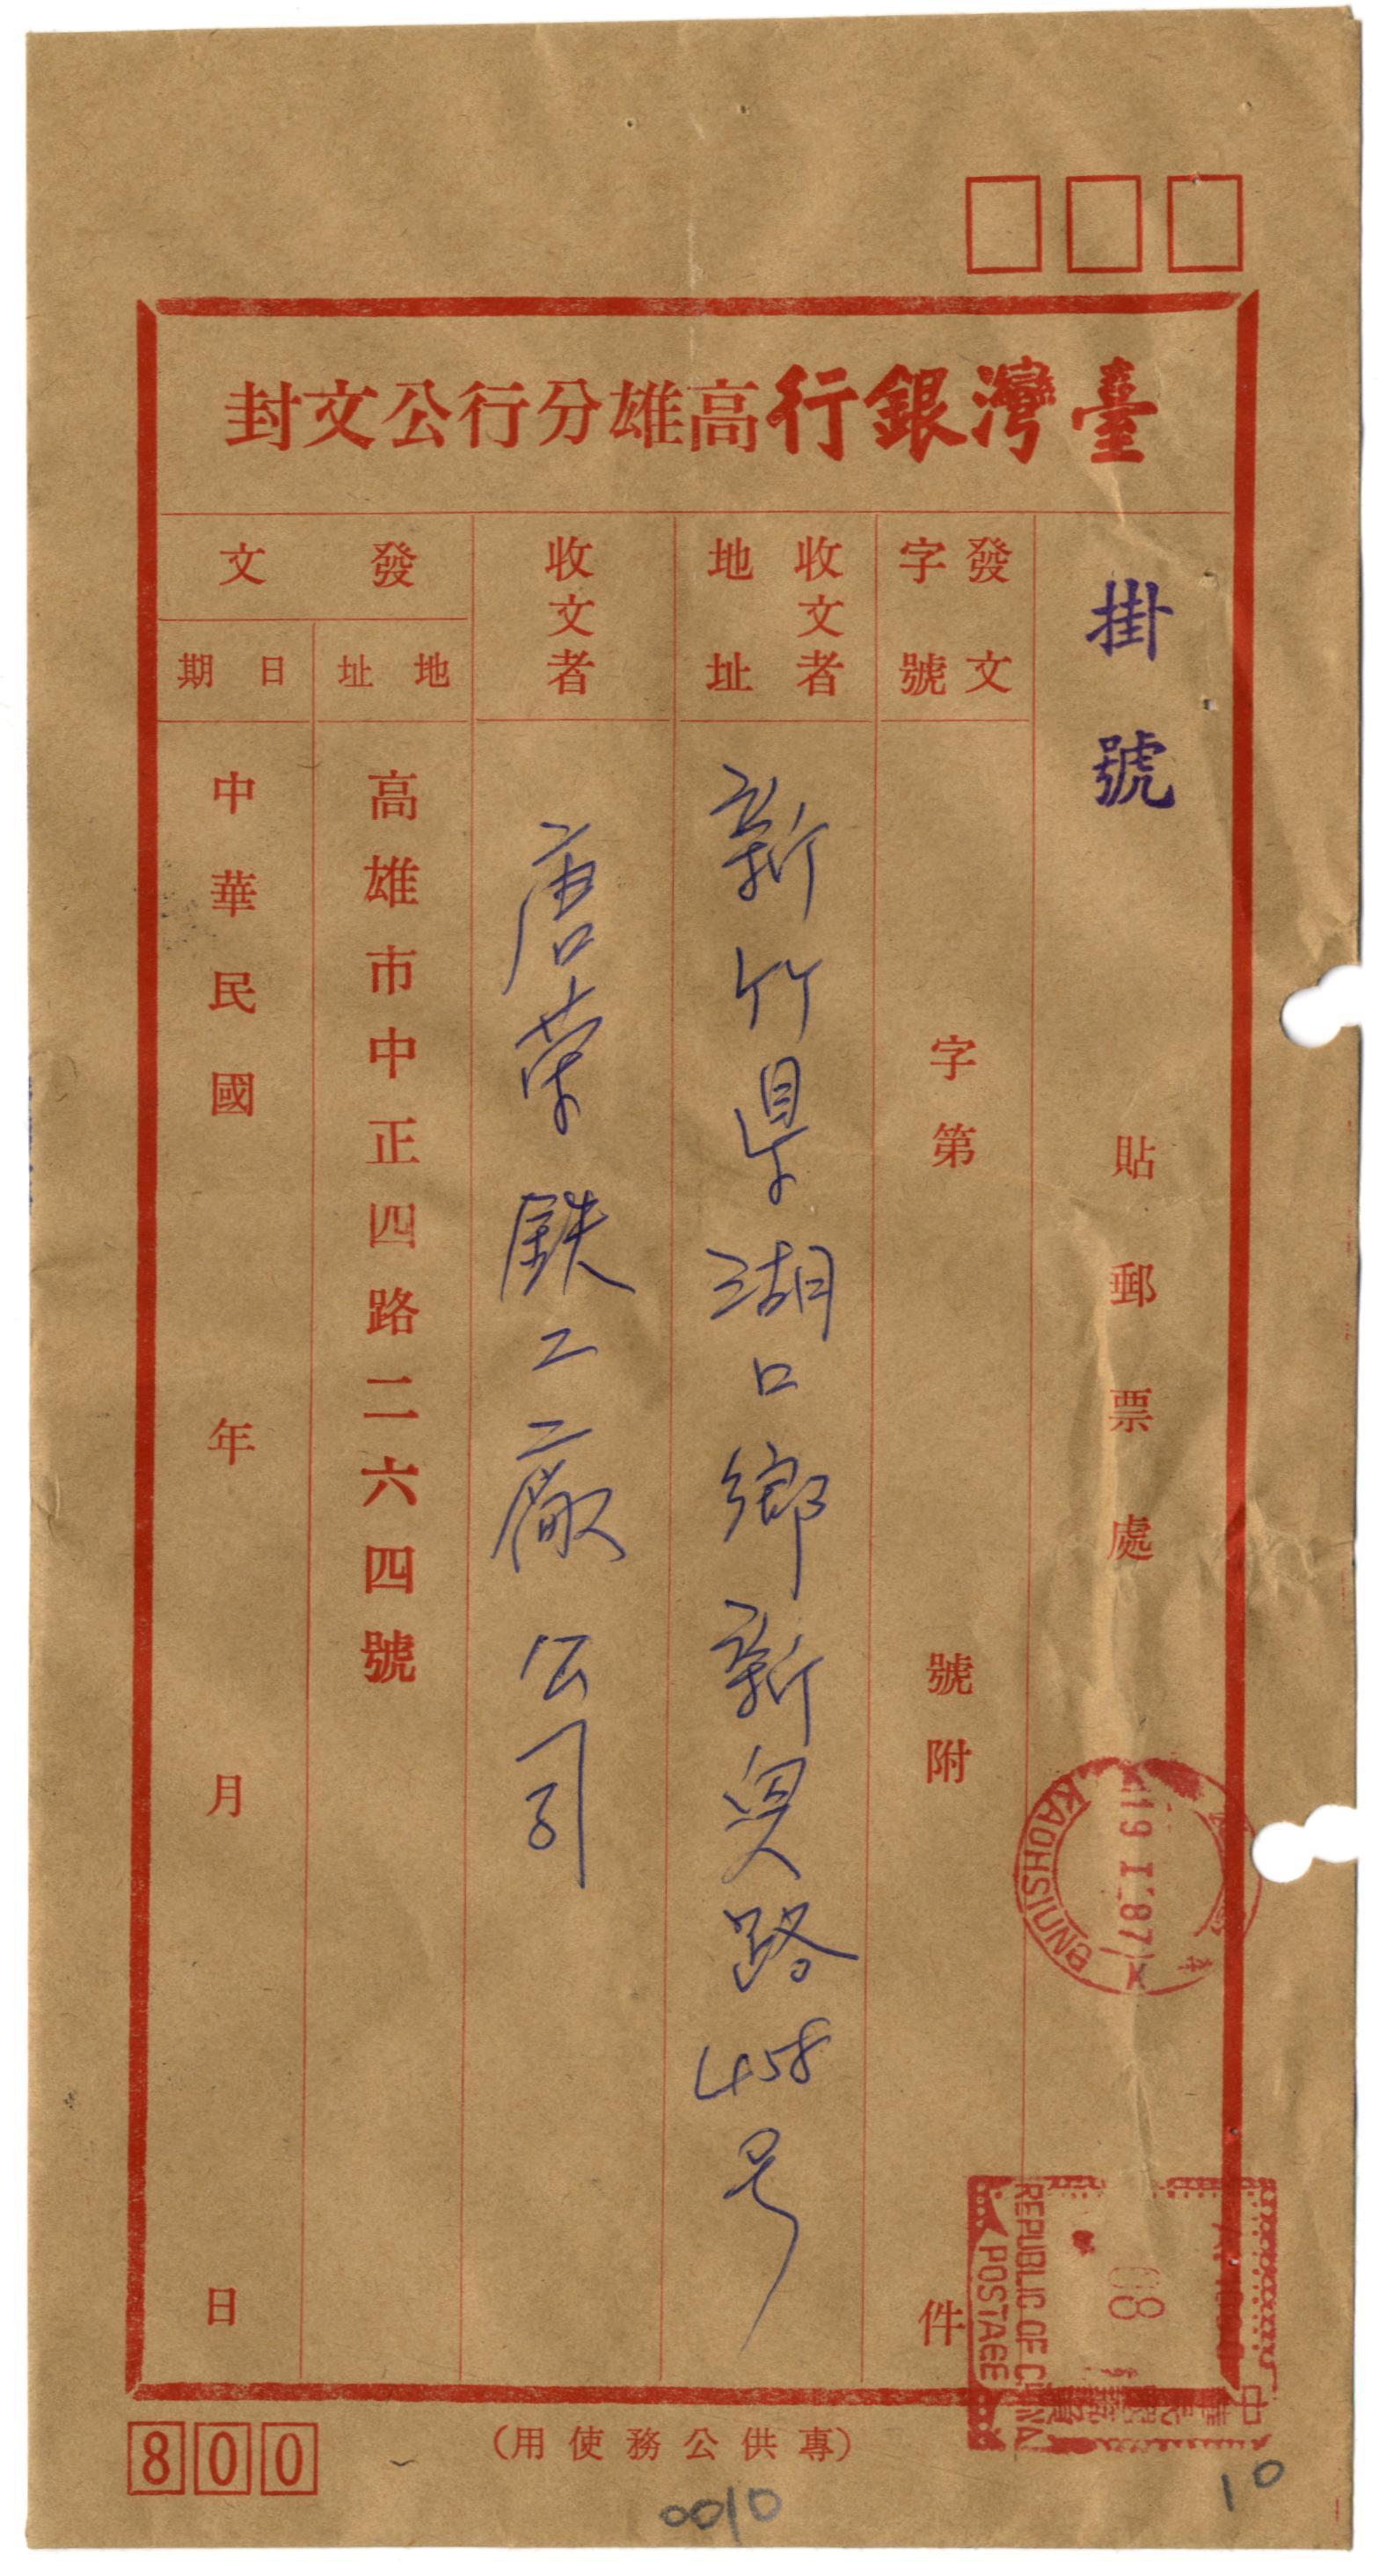 臺灣銀行高雄分行公文封
掛號
貼郵票處
發文字號
字第 號附 件
收文者地址
新竹県湖口鄉新興路458号
收文者
唐榮鉄工廠公司
發文
地址
高雄市中正四路二六四號
日期
中華民國 年 月 日
KAOHSIUNG
19 I .87
REPUBLIC OF CHINA
POSTAGE
(專供公務使用)
800
0010
10